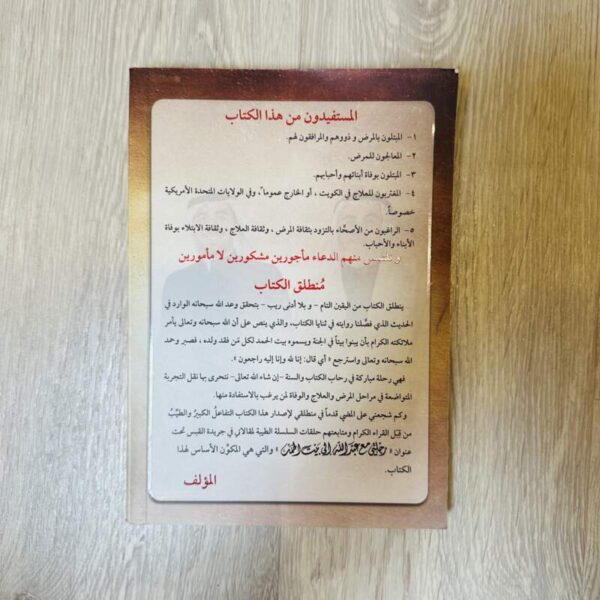 المستفيدون من هذا الكتاب
١- المبتلون بالمرض و ذووهم والمرافقون لهم.
٢- المعالجون للمرض.
٣- المبتلون بوفاة أبنائهم وأحبابهم.
٤- المغتربون للعلاج في الكويت ، أو الخارج عموماً، وفي الولايات المتحدة الأمريكية
خصوصاً.
٥- الراغبون من الأصحّاء بالتزود بثقافة المرض ، وثقافة العلاج ، وثقافة الابتلاء بوفاة
الأبناء والأحباب.
منهم الدعاء مأجورين مشكورين لا مأمورين
مُنطلق الكتاب
ينطلق الكتاب من اليقين التام - و بلا أدنى ريب - بتحقق وعد الله سبحانه الوارد في
الحديث الذي فصَّلنا روايته في ثنايا الكتاب، والذي ينص على أن الله سبحانه وتعالى يأمر
ملائكته الكرام بأن يبنوا بيتاً في الجنة ويسموه بيت الحمد لكل من فقد ولده ، فصبر وحمد
الله سبحانه وتعالى واسترجع « أي قال: إنا لله وإنا إليه راجعون ».
فهي رحلة مباركة في رحاب الكتاب والسنة -إن شاء الله تعالى- نتحرى بها نقل التجربة
المتواضعة في مراحل المرض والعلاج والوفاة لمن يرغب بالاستفادة منها.
وكم شجعني على المضي قدماً في منطلقي لإصدار هذا الكتاب التفاعلُ الكبيرُ والطيِّبُ
من قِبَل القراء الكرام ومتابعتهم حلقات السلسلة الطيبة لمقالاتي في جريدة القبس تحت
عنوان « رحلتي مع عبدالله إلى بيت الحمد » والتي هي المكوِّن الأساس لهذا
الكتاب.
المؤلف